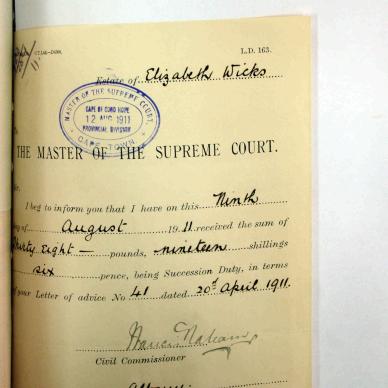 L.D. 163.
Estate of Elizabeth Wicks
MASTER OF THE SUPREME COURT,
CAPE OF GOOD HOPE
12 AUG 1911
PROVINCIAL DIVISION
CAPE TOWN
THE MASTER OF THE SUPREME COURT.
I beg to inform you that I have on this Ninth
August 1911 received the sum of
Eight pounds, nineteen shillings
six pence, being Succession Duty, in terms
of your Letter of advice No 41 dated 20th April 1911.
Civil Commissioner
Albany